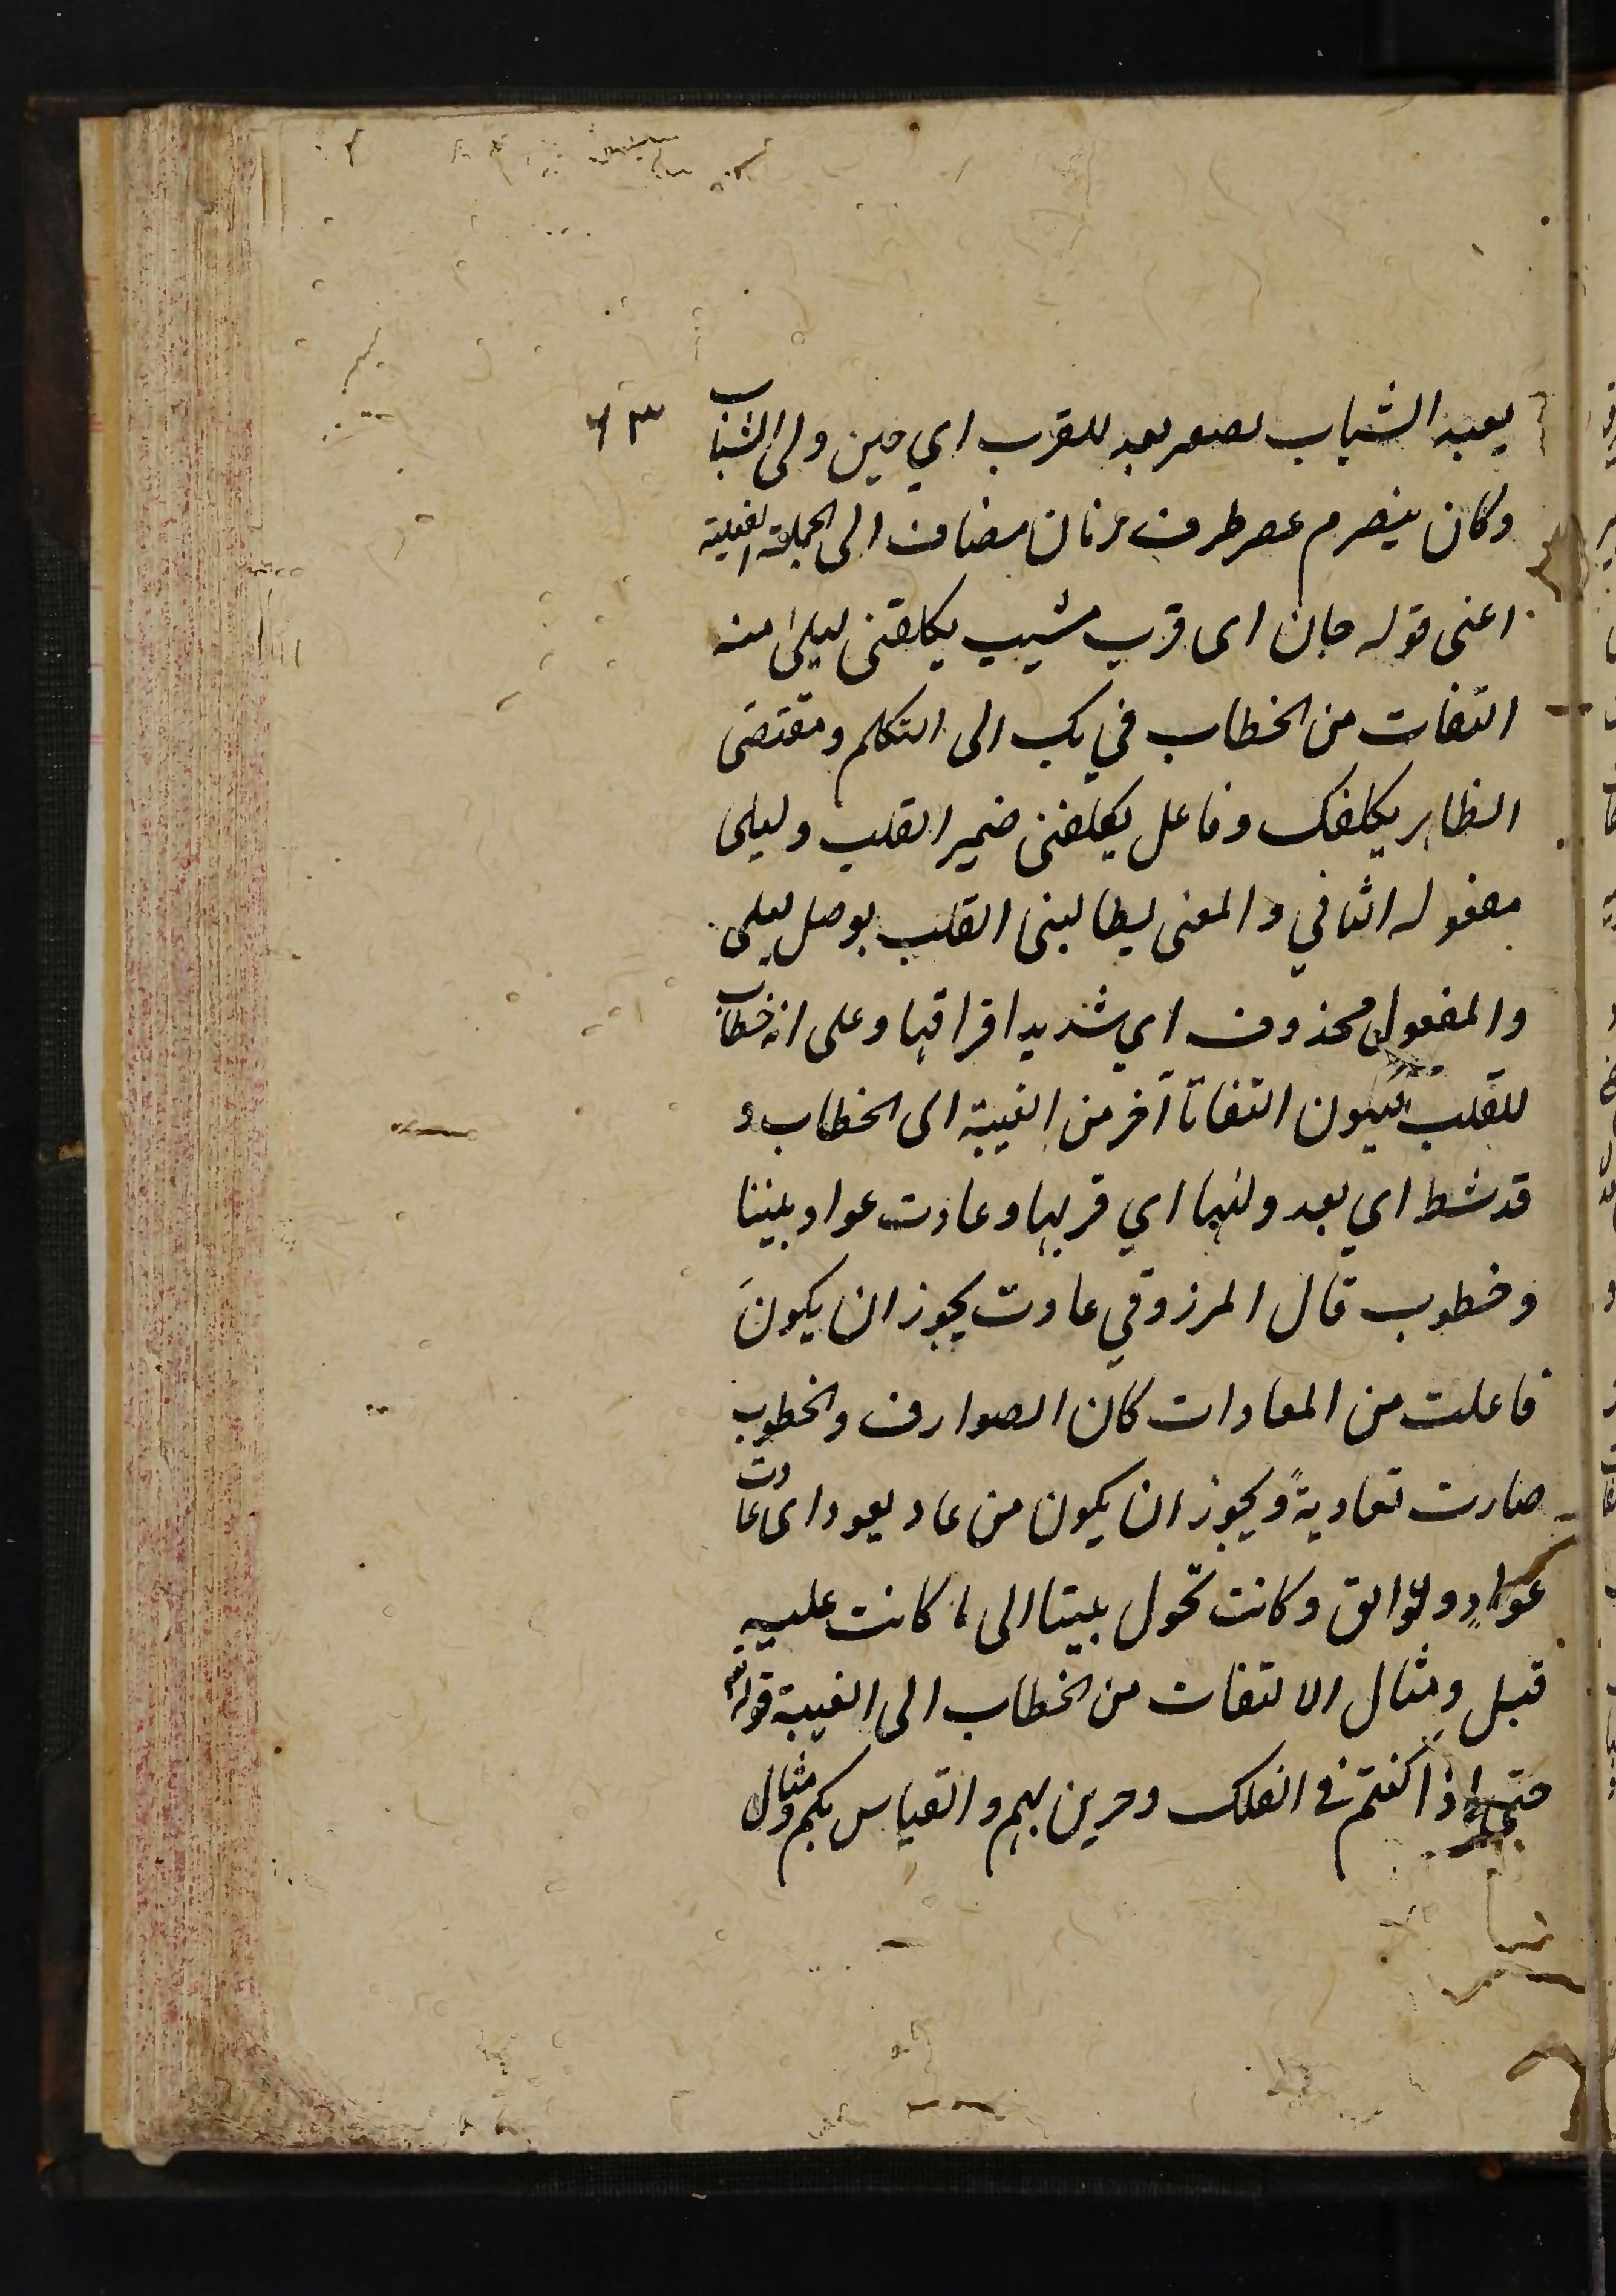 ٦٣
بعيد الشباب تصغير بعد للقرب اي حين ولى الشباب
وكان ينصرم عصر ظرف زمان مضاف الى الجملة الفعلية
اعنى قوله حان اى قرب مشيب يكلفنى ليلى منه
التفات من الخطاب في بك الى التكلم ومقتضى
الظاهر يكلفك وفاعل يكلفنى ضمير القلب وليلى
مفعوله الثاني والمعنى يطالبنى القلب بوصل ليلى
والمفعول محذوف اي شديد افراقها وعلى انه خطاب
للقلب فيكون التفاتا آخر من الغيبة الى الخطاب و
قد شط اي بعد وليها اي قربها وعادت عواد بيننا
وخطوب قال المرزوقي عادت يجوز ان يكون
فاعلت من المعادات كان الصوارف والخطوب
صارت تعاديةً ويجوز ان يكون من عاد يعود اى عادت
عوادٍ وعوائق وكانت تحول بيننا الى ما كانت عليه
قبل ومثال الالتفات من الخطاب الى الغيبة قوله تع
حتى اذا كنتم في الفلك وجرين بهم والقياس بكم ومثال